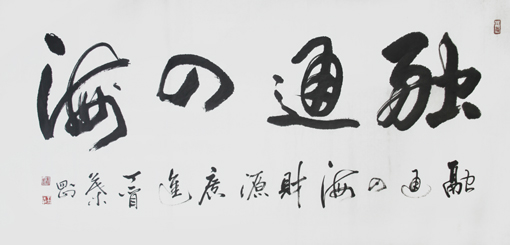 融通四海
融通四海財源廣進丁酉